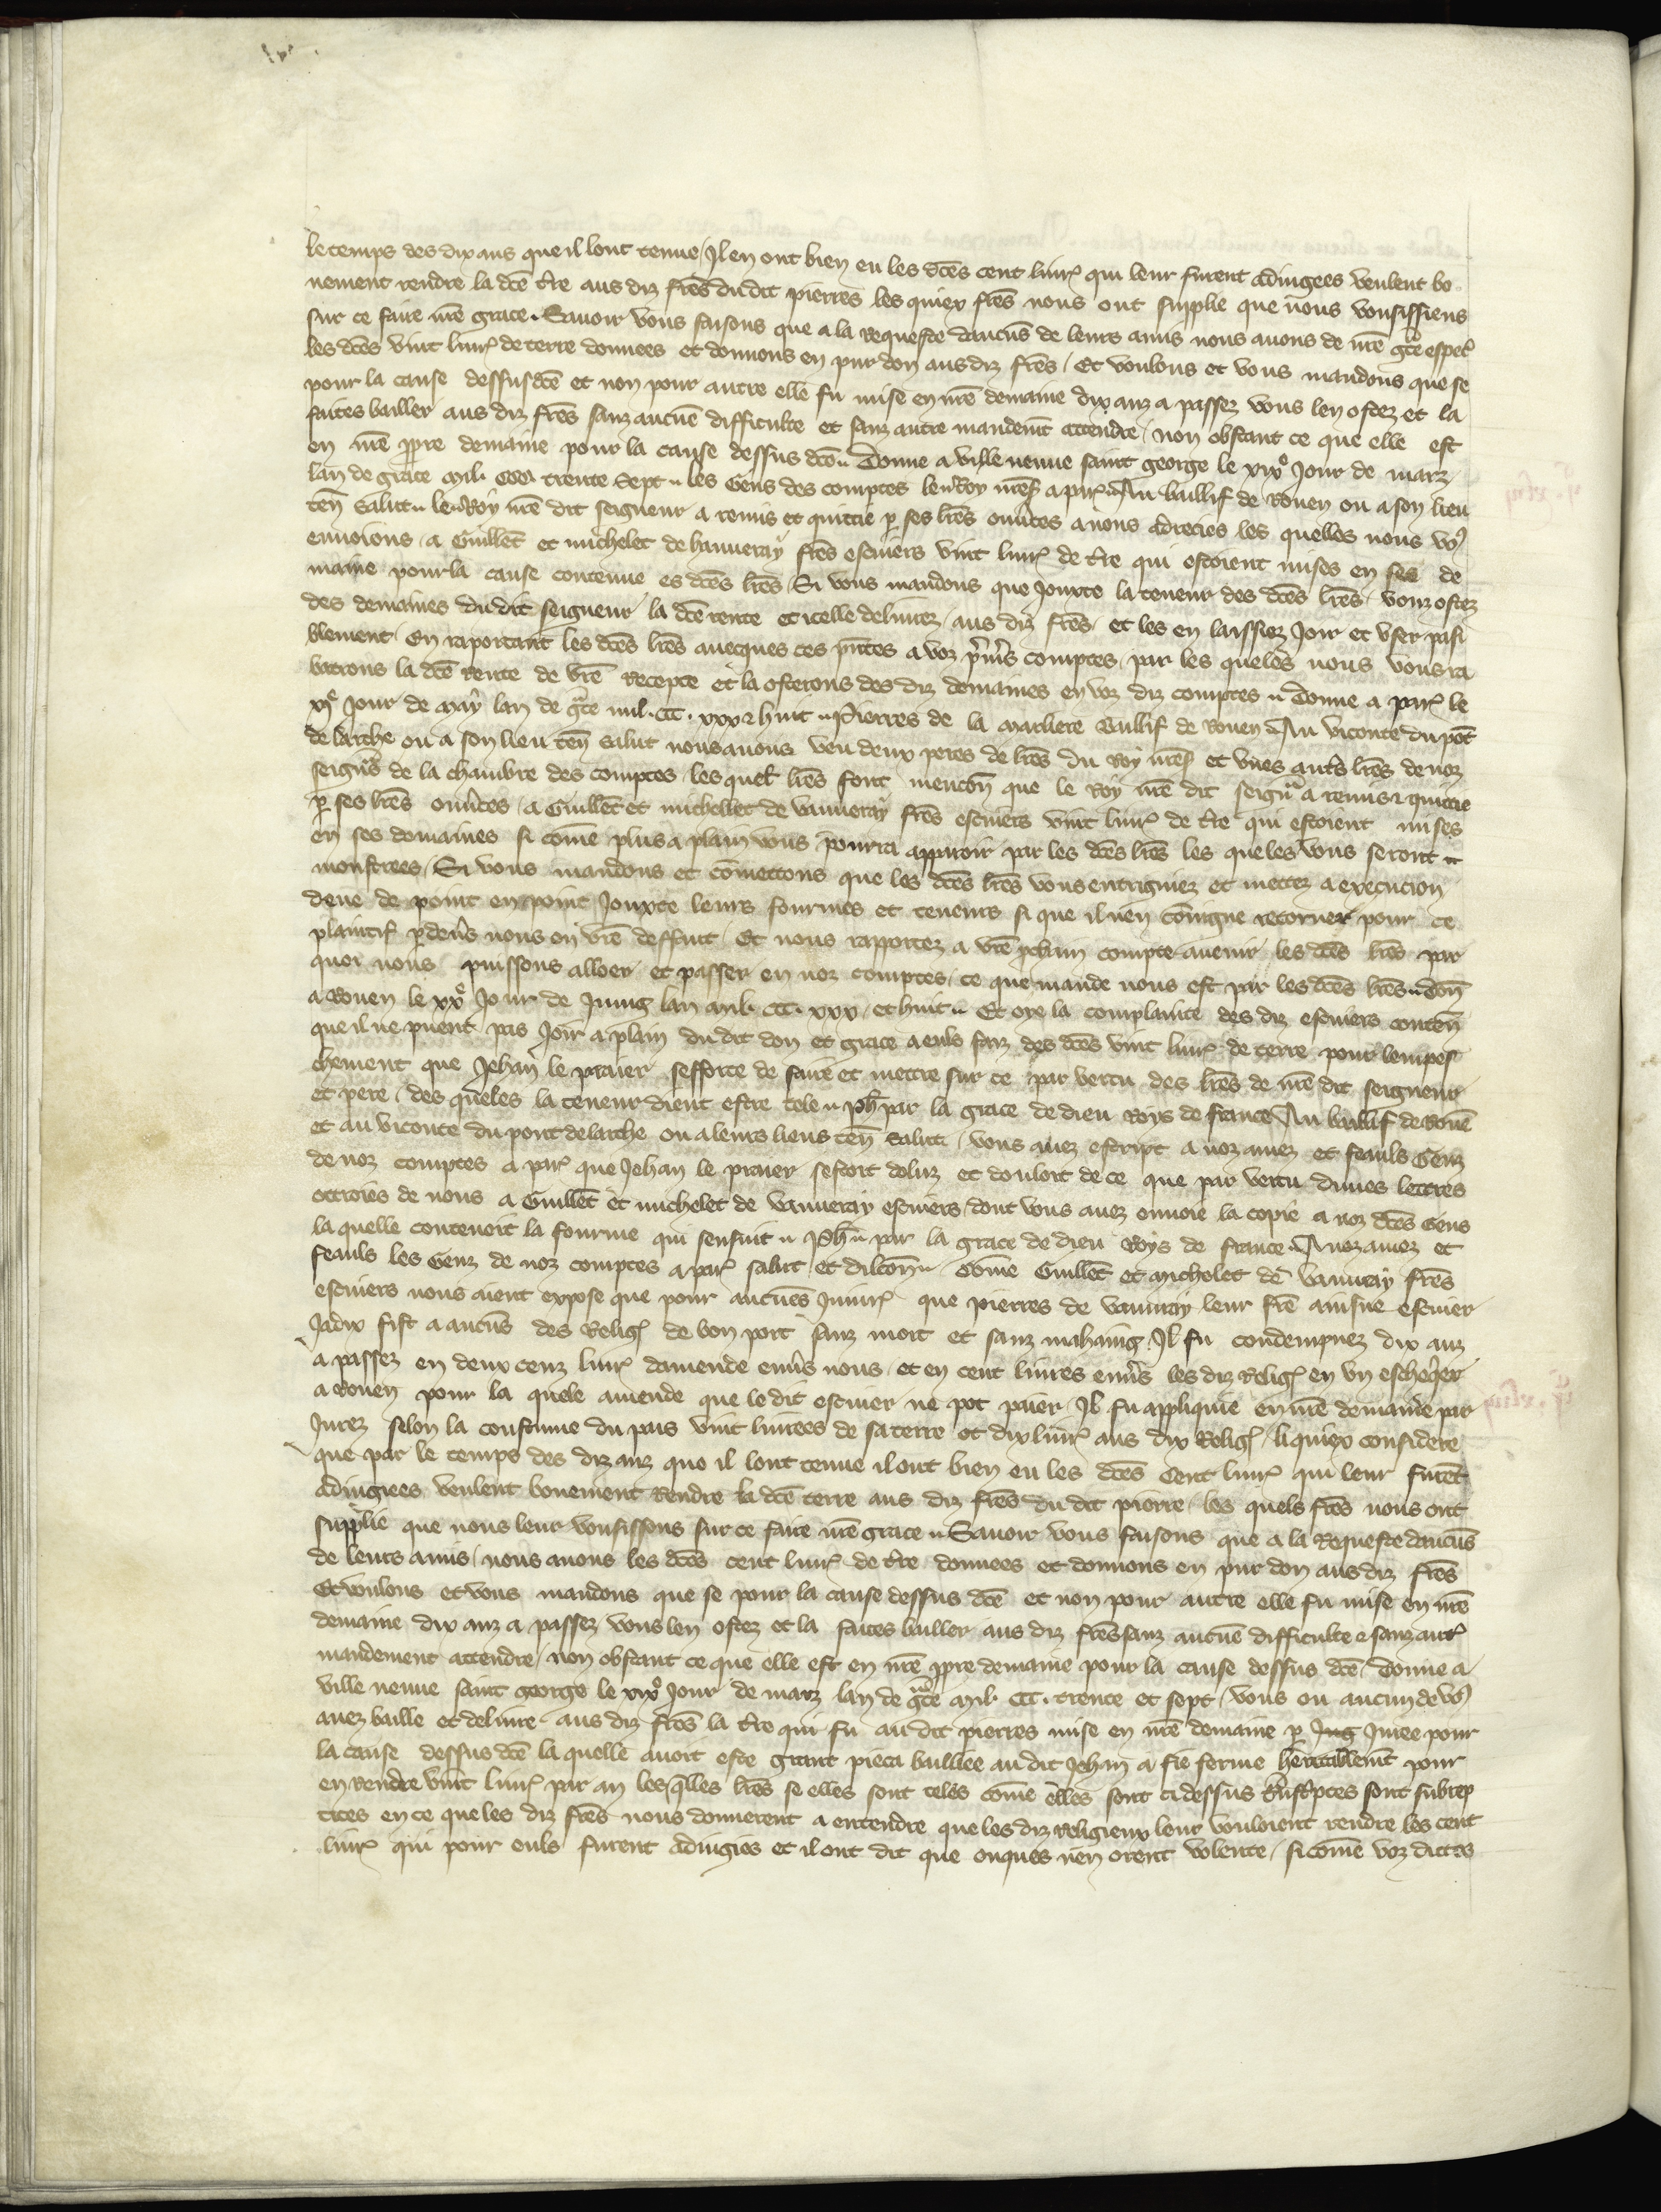 le temps des dix ans que il lont tenue / Il en ont bien eu les dces cent liur͛ qui leur furent adiugees veulent bo
nement rendre la dce t͛re aus diz fres dudit pierres les quiex fres nous ont supplie que nous vousissiens
sur ce faire nre grace. Sauoir vous faisons que a la requeste daucuns de leurs amis nous auons de nre gce especͥ
les dces vint liur͛ de terre donnees et donnons en pur don aus diz fres / Et voulons et vous mandons que se
pour la cause dessus dce et non pour autre elle fu mise en nre demaine dix anz a passez vous len ostez et la
faites bailler aus diz fres sanz aucune difficulte et sanz autre mandemt attendre / non obstant ce que elle est
en nre ppre demaine pour la cause dessus dce Donne a ville neuue saint george le xixe Jour de marz
lan de grace mil. CCC. trente Sept les Gens des comptes le Roy nres͛ a par͛ Au baillif de Rouen ou a son lieu
ten Salut le Roy nre dit seigneur a remis et quittie p ses lres ouutes a nous adrecies les quelles nous vo9
enuoions / a Guillet et michelet de vanneray fres escuiers vint liur͛ de t͛re qui estoient mises en ses de
maine pour la cause contenue es dces lres / Si vous mandons que Jouxte la teneur des dces lres / vouz ostez
des demaines du dit seigneur la dce rente et icelle deliurez / aus diz fres / et les en laissiez Joir et vser paisi
blement / En raportant les dces lres auecques ces pntes a voz pmiers comptes / par les queles nous vous ra
batrons la dce Rente de vre Recepte et la osterons des diz demaines en voz diz comptes Donne a par͛ le
xje Jour de may lan de gce mil. CCC. xxx & huit Pierres de la marliere Baillif de Rouen Au viconte du pot
de larche ou a son lieu ten salut nous auons veu deux peres de lres du Roy nres͛ et vnes autres lres de noz
seigns de la chambre des comptes / les quel͛ lres font mencon que le Roy nre dit seignr a remis & quittie
p ses lres ouutes / a Guillet et michellet de vanneray fres escuiers vint liur͛ de t͛re qui estoient mises
en ses domaines si come plus a plain vous pourra apparoir par les dces lres les queles vous seront
monstrees / Si vous mandons et comettons que les dces lres vous enterignez et mettez a execucion
deue de point en point Jouxte leurs fourmes et teneurs si que il nen couiegne retorner pour ce
plaintif pdeus nous en vre deffaut / Et nous rapportez a vre pchain compte auenir les dces lres par
quoi nous puissons alloer et passer en noz comptes / ce que mande nous est par les dces lres Don
a Rouen le xxe Jour de Juing lan mil. CCC. xxx. et huit Et oye la complainte des diz escuiers conten
que il ne puent pas Joir a plain du dit don et grace a euls faiz des dces vint liur͛ de terre pour lempes
chement que Jehan le prauer sefforce de faire et mettre sur ce par vertu des lres de nre dit seigneur
et pere / des queles la teneur dient estre tele Ph par la grace de dieu Roys de france Au baillif de Rouen
et au viconte du pont de larche ou a leurs lieus ten salut / vous auez escript a noz amez et feauls Genz
de noz comptes a par͛ que Jehan le prauer sestoit doluz et douloit de ce que par vertu dunes lettres
ottroies de nous a Guillet et michelet de vanneray escuiers / dont vous auez enuoie la copie a noz dces Gens
la quelle contenoit la fourme qui sensuit Ph par la grace de dieu Roys de france A noz amez et
feauls les Genz de noz comptes a par͛ salut et dilcon Come Guillet et michelet de vanneray fres
escuiers nous aient expose que pour aucunes Iniur͛ que pierres de vanneray leur fre ainsne escuier
Jadix fist a aucuns des Relig͛ de bon port sanz mort et sanz mahaing Il fu condempnez dix anz
a passez en deux cenz liur͛ damende enuers nous / et en cent liures enuers les diz Relig͛ en vn escheqer
a Rouen pour la quele amende que le dit escuier ne pot paier / Il fu appliquie en nre demaine par
Jurez selon la coustume du pais vint liurees de sa terre et dix liur͛ aus dix Relig͛ / liquiex considere
que par le temps des diz anz que il lont tenue il ont bien eu les dces Cent liur͛ qui leur furent
adiugiees veulent bonement Rendre la dce terre aus diz fres du dit pierre / les quels fres nous ont
supplie que nous leur vousissons sur ce faire nre grace Sauoir vous faisons que a la Requeste daucuns
de leurs amis / nous auons les dces cent liur͛ de t͛re donnees et donnons en pur don aus diz fres
Et voulons et vous mandons que se pour la cause dessus dce et non pour autre elle fu mise en nre
demaine dix anz a passez vous len ostez et la faites bailler aus diz fres sanz aucune difficulte & sanz aut͛
mandement attendre / non obstant ce que elle est en nre ppre demaine pour la cause dessus dce / Donne a
ville neuue saint george le xixe Jour de marz lan de gce mil. CCC. trente et sept / vous ou aucun de vo9
auez baille et deliure aus diz fres la t͛re qui fu au dit pierres mise en nre demaine p Jug Juree pour
la cause dessus dce la quelle auoit este grant pieca bailliee au dit Jehan a fie ferme heritablemt pour
en Rendre vint liur͛ par an les qlles lres se elles sont teles come elles sont ci dessus tnscptes sont subrep
tices en ce que les diz fres nous donnerent a entendre que les diz religieux leur vouloient rendre les cent
liur͛ qui pour euls furent adiugies et il ont dit que onques nen orent volente / si come voz dictes